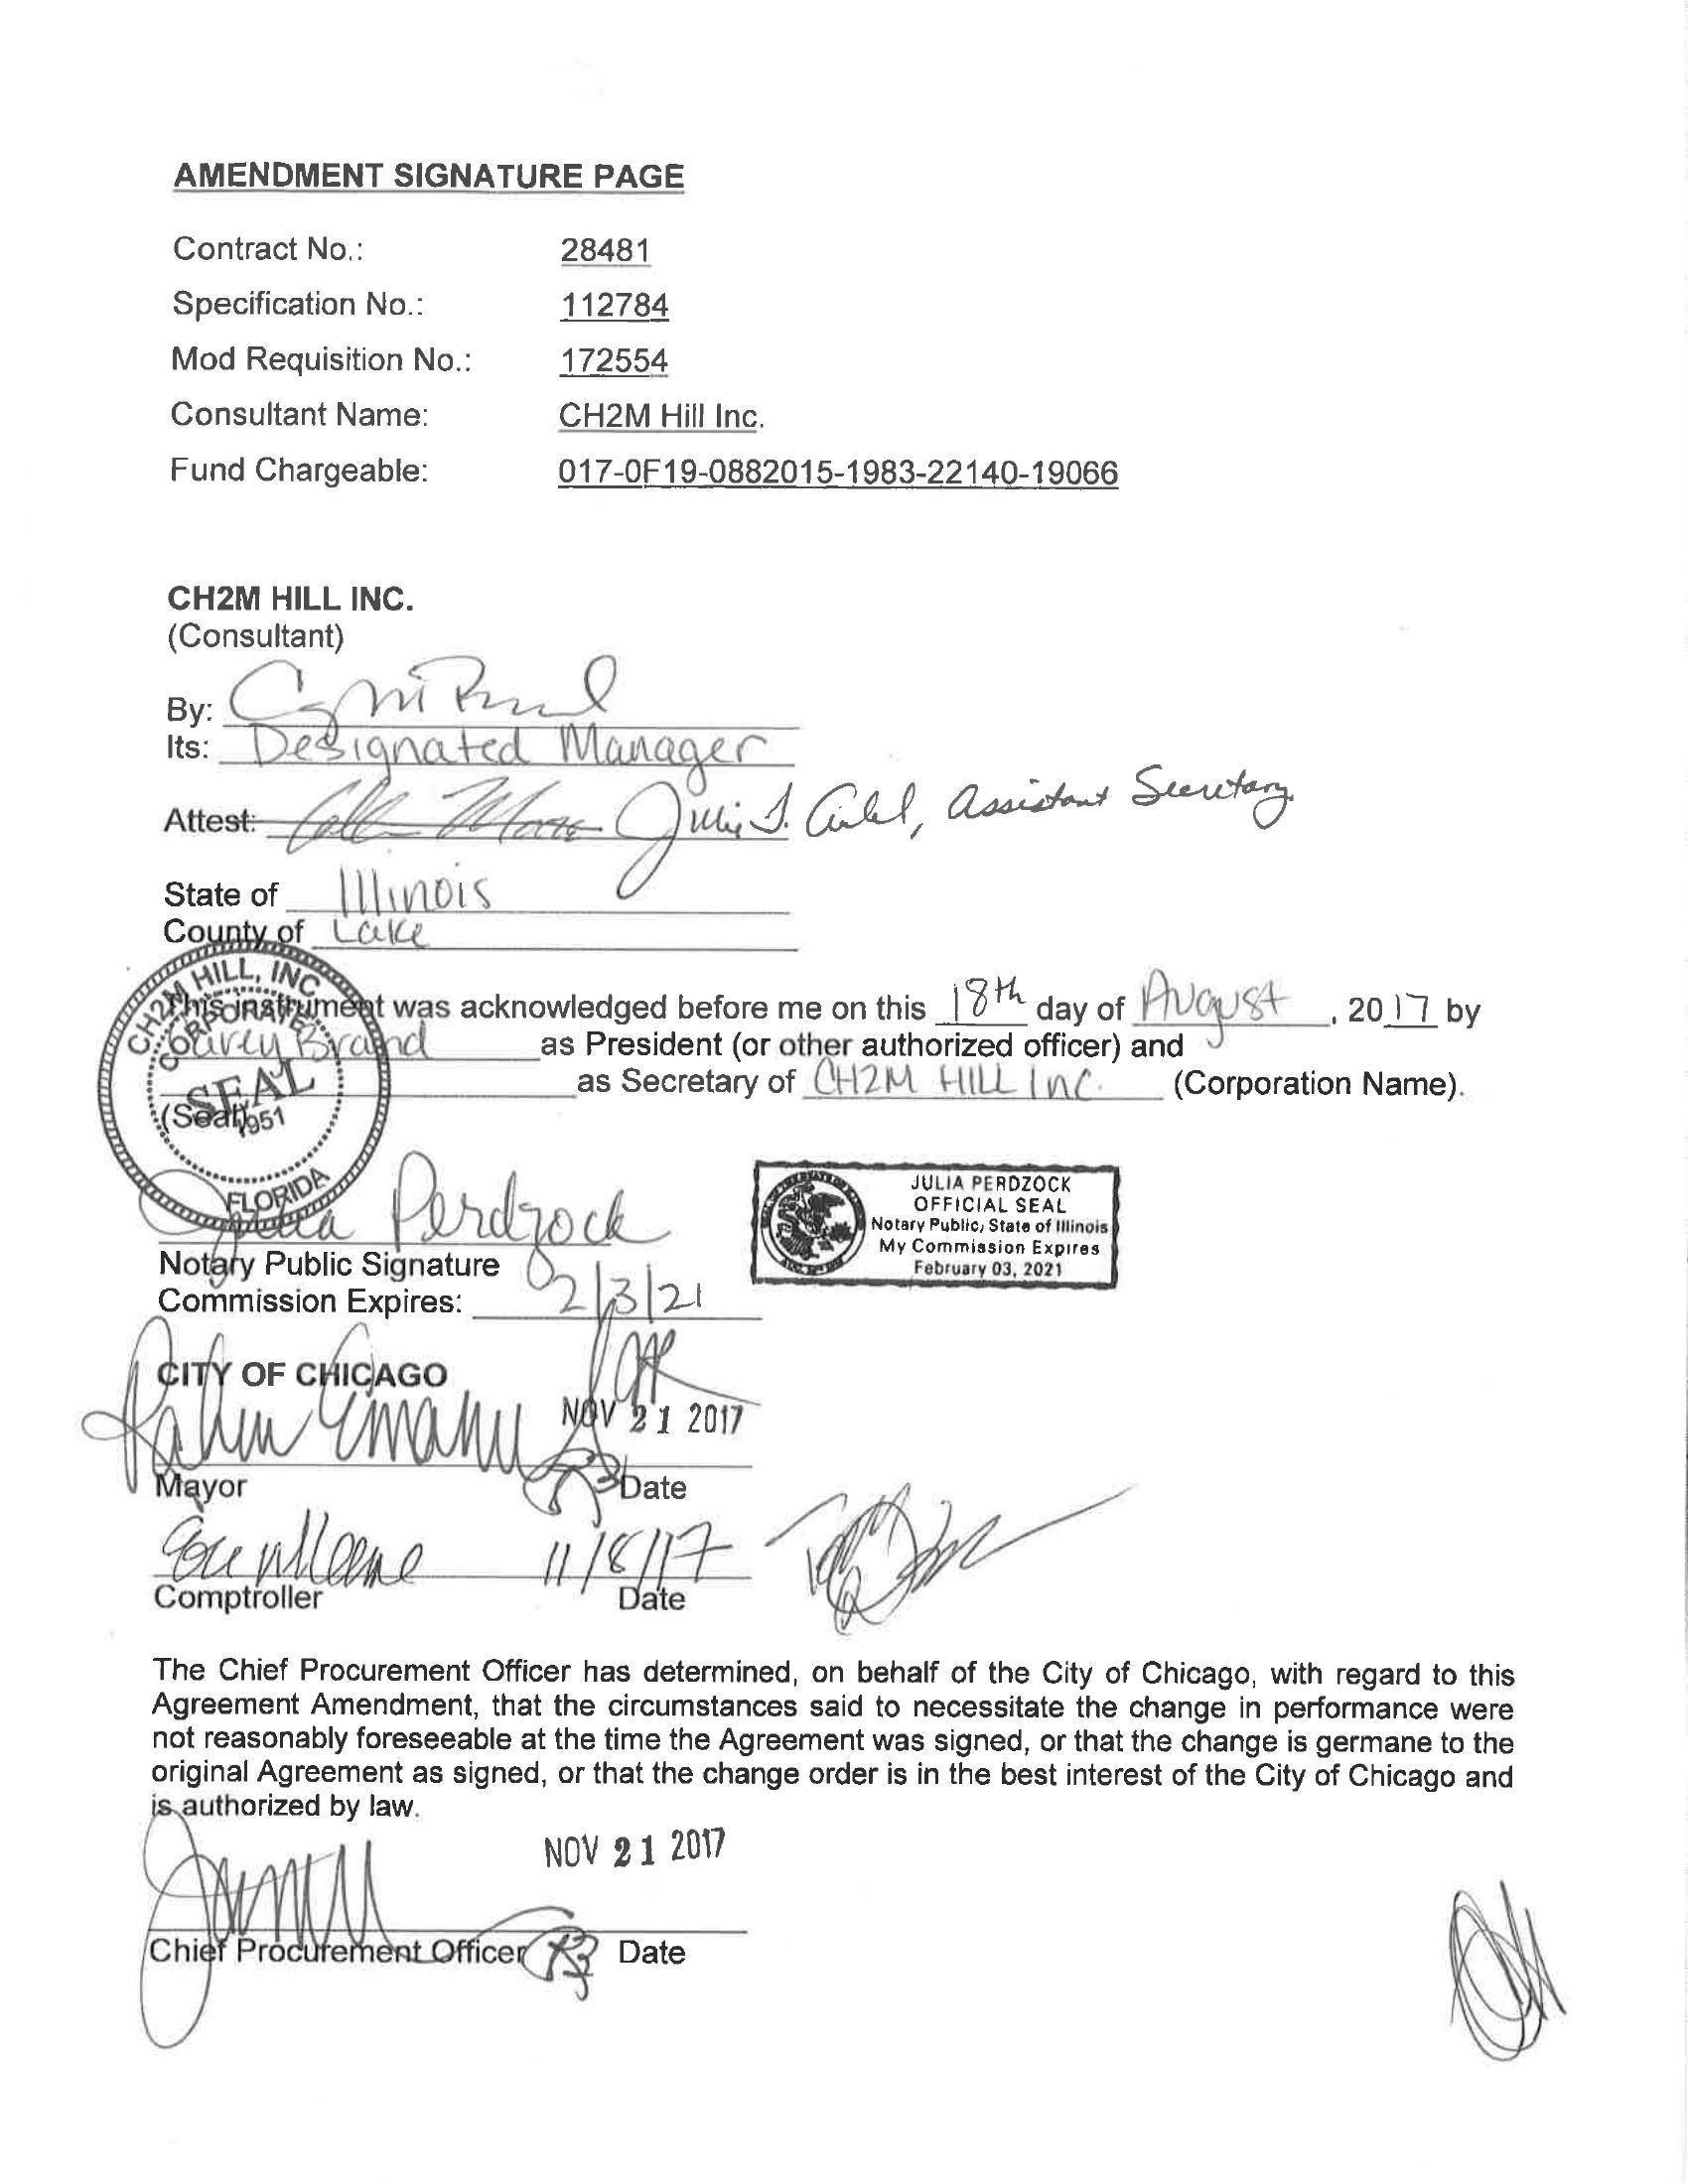 AMENDMENT SIGNATURE PAGE
Contract No.: 28481
Specification No.: 112784
Mod Requisition No.: 172554
Consultant Name: CH2M Hill Inc.
Fund Chargeable: 017-0F19-0882015-1983-22140-19066
CH2M HILL INC.
(Consultant)
By:
Its: Designated Manager
Attest: Assistant Secretary
State of Illinois
County of Lake
CH2M HILL, INC.
CORPORATE
SEAL
1951
FLORIDA
This instrument was acknowledged before me on this 18th day of August, 2017 by
Brand as President (or other authorized officer) and
as Secretary of CH2M HILL Inc. (Corporation Name).
(Seal)
Julia Perdzock
JULIA PERDZOCK
OFFICIAL SEAL
Notary Public, State of Illinois
My Commission Expires
February 03, 2021
Notary Public Signature
Commission Expires: 2/3/21
CITY OF CHICAGO
Rahm Emanuel NOV 21 2017
Mayor Date
11/8/17
Comptroller Date
The Chief Procurement Officer has determined, on behalf of the City of Chicago, with regard to this
Agreement Amendment, that the circumstances said to necessitate the change in performance were
not reasonably foreseeable at the time the Agreement was signed, or that the change is germane to the
original Agreement as signed, or that the change order is in the best interest of the City of Chicago and
is authorized by law.
NOV 21 2017
Chief Procurement Officer Date